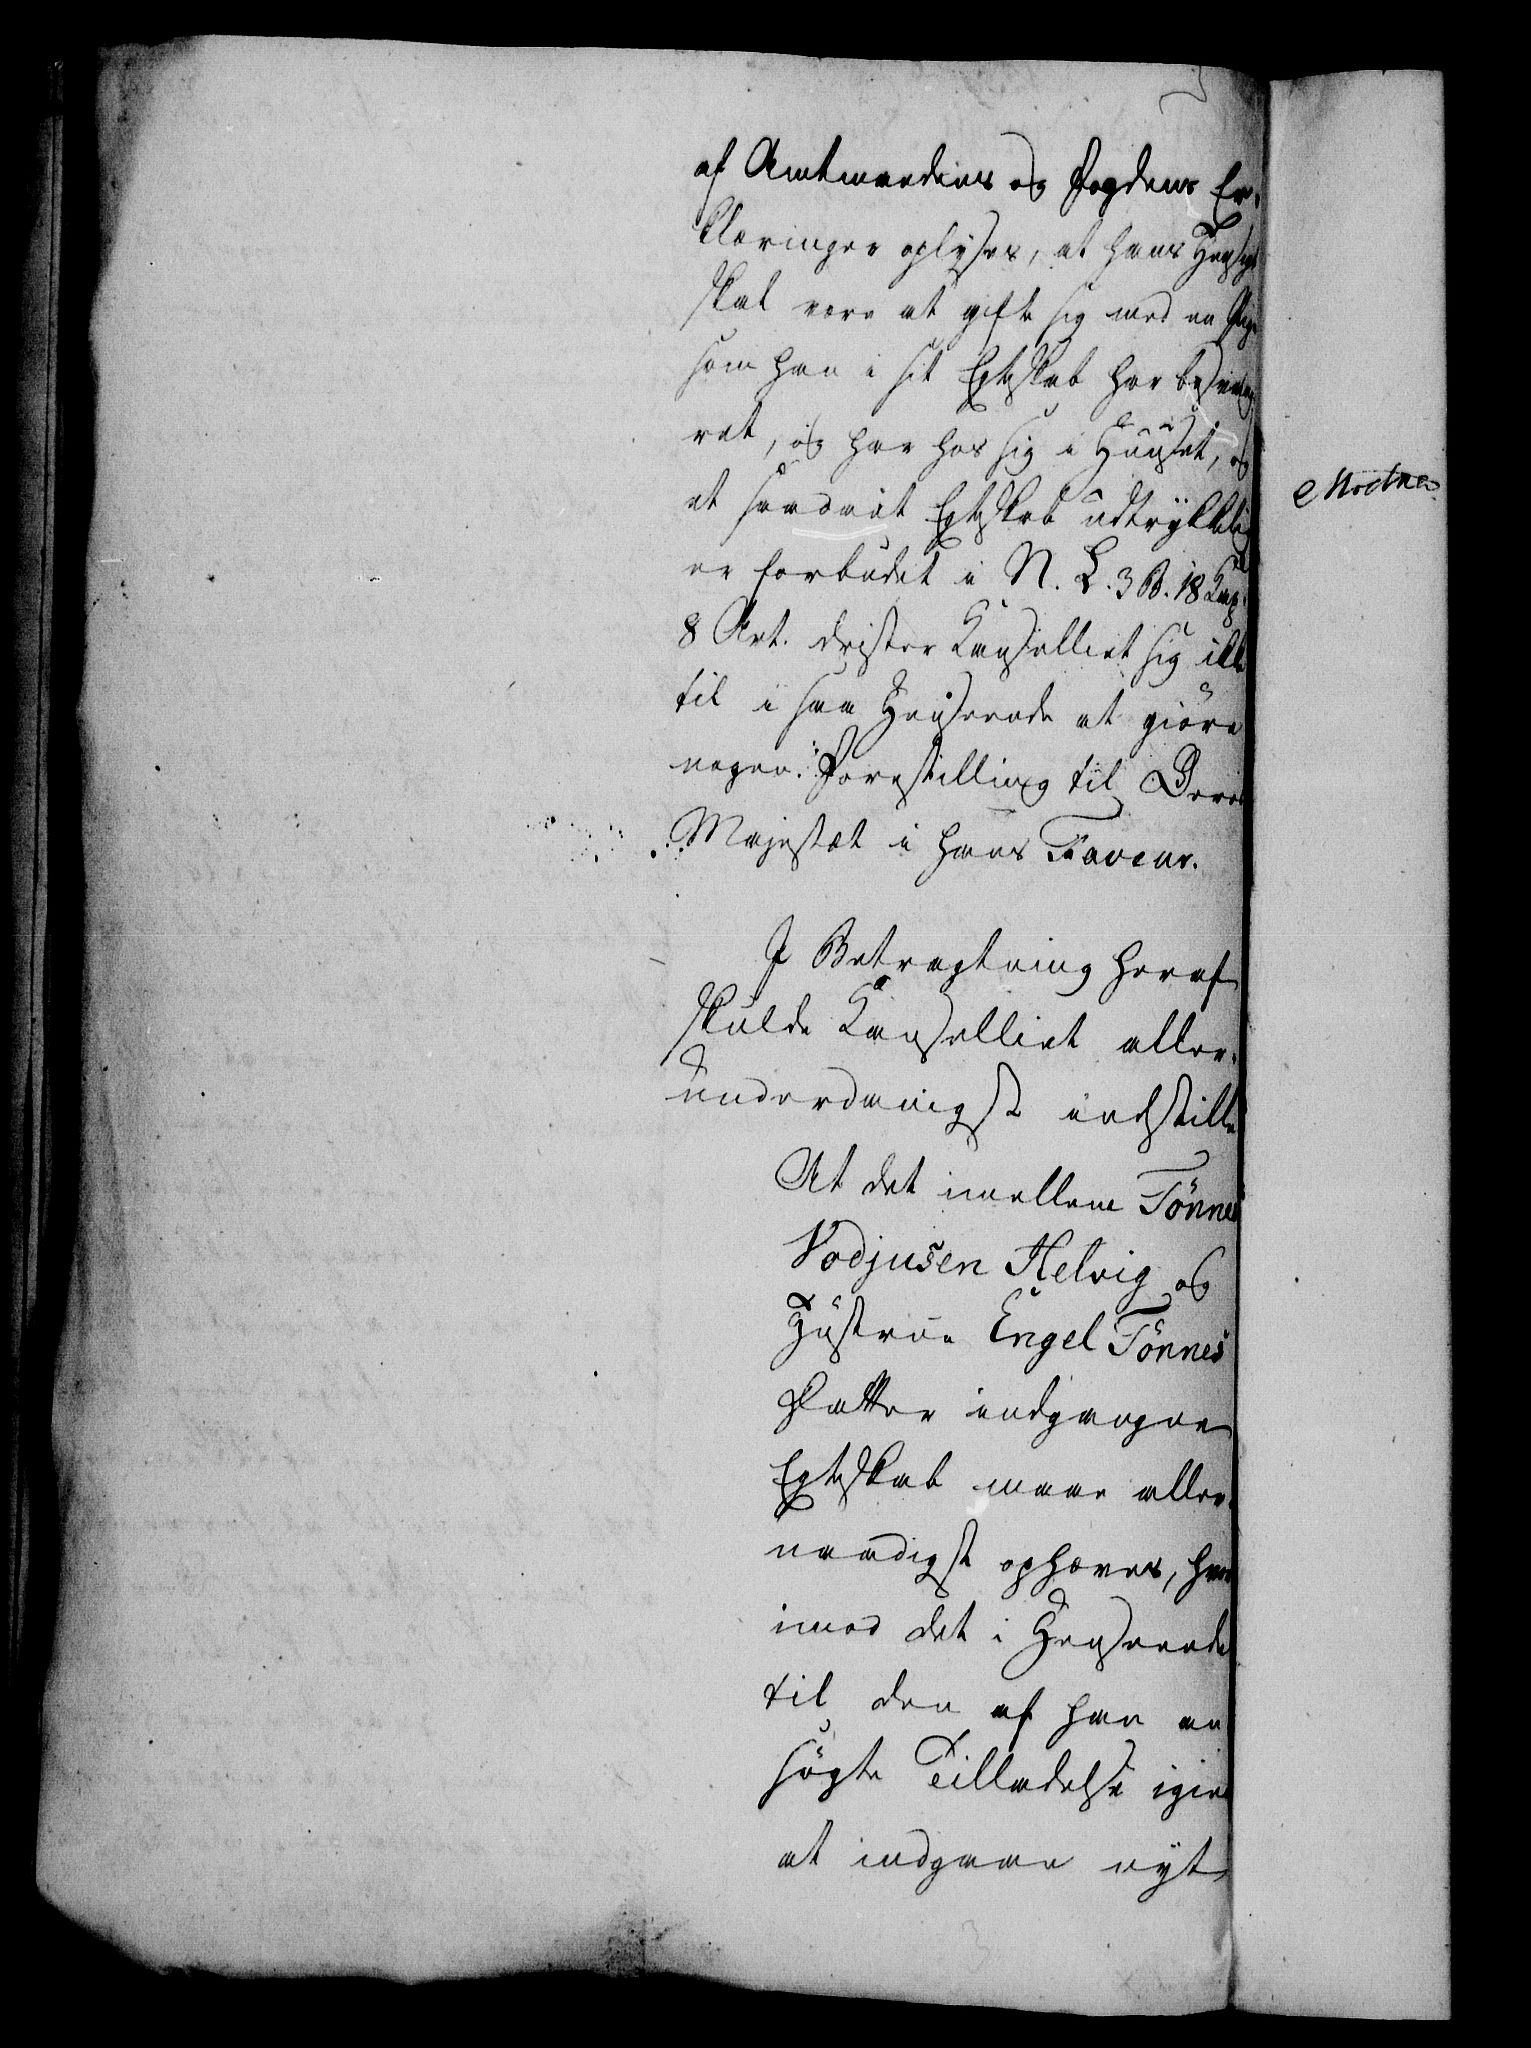 af Amtmandens og Fogdens Er-
klæringer oplyses, at hans Hensigt
skal være at gifte sig med en Pige
som han i sit Egteskab har besvang-
ret, og har hos sig i Huuset, og
et saadant Egteskab udtrykkelig
er forbudet i N. L. 3 B. 18 Cap.
8 Art. drister Kanselliet sig ikke
til i saa Henseende at giöre
nogen Forestilling til Deres
Majestæt i hans Faveur.
I Betragtning heraf
skulde Kanselliet aller-
underdanigst indstille
At det imellem Tönnes
Vodjusen Helvig og
Hustrue Engel Tönnes
Datter indgangne
Egteskab maae aller-
naadigst ophæves, hvor
imod det i Henseende
til den af ham an
søgte Tilladelse igien
at indgaae nyt